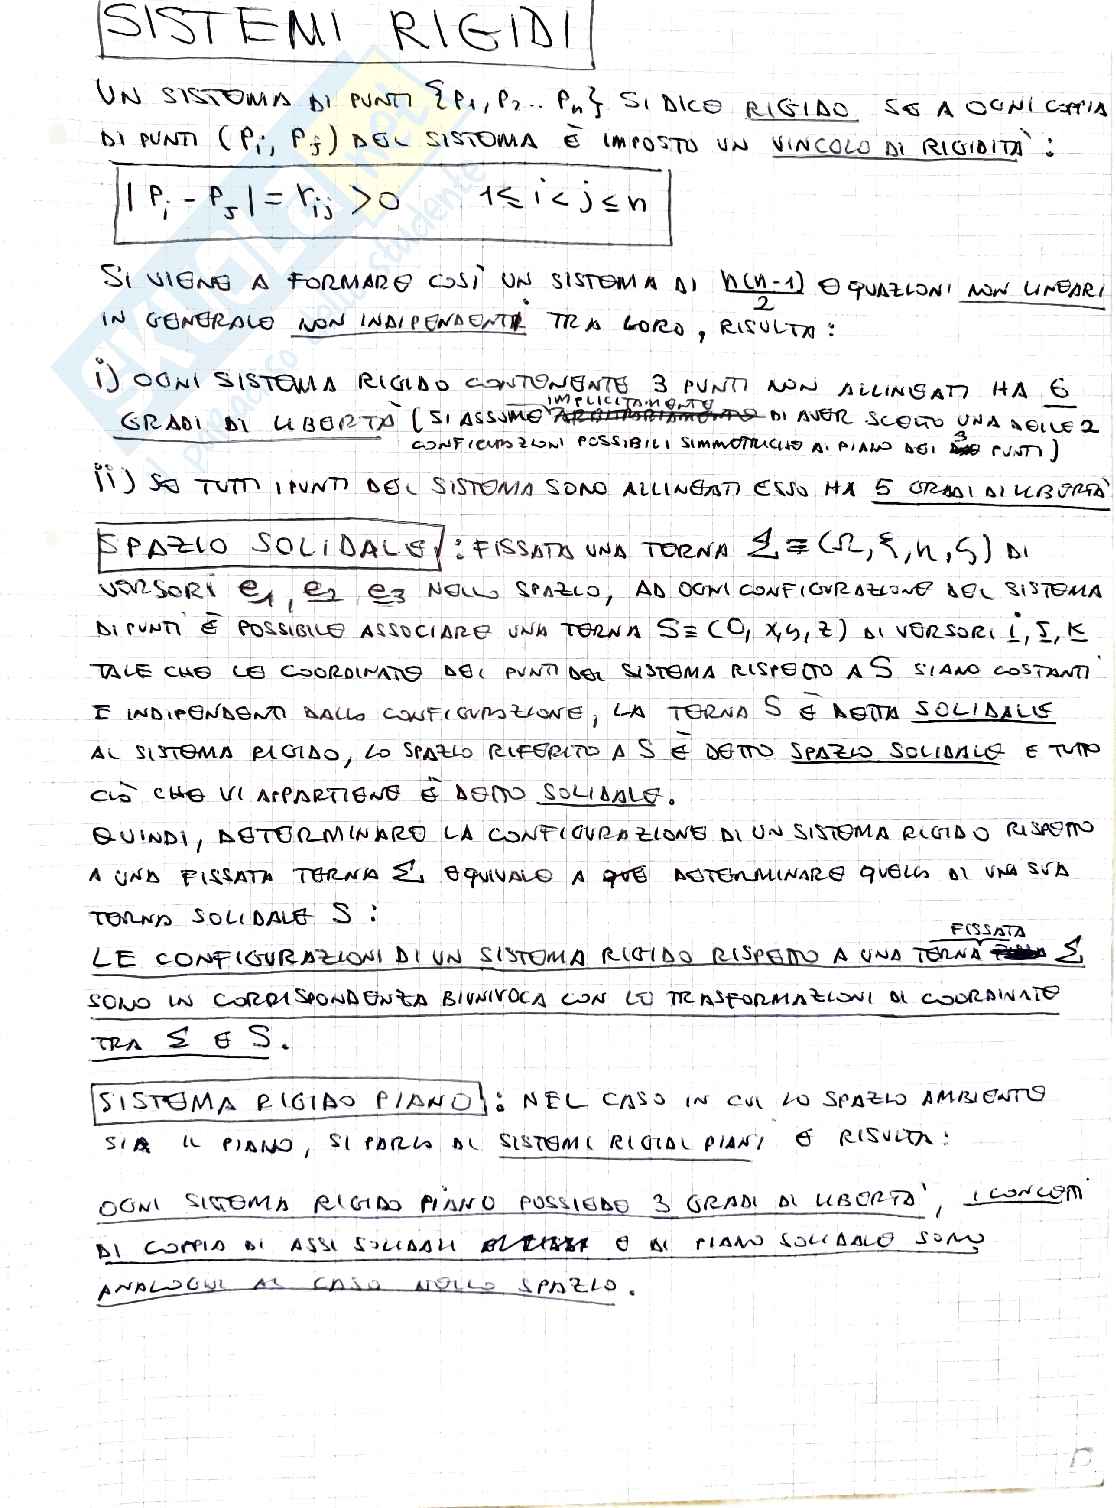 SISTEMI RIGIDI
UN SISTEMA DI PUNTI {P1, P2.. Pn} SI DICE RIGIDO SE A OGNI COPPIA
DI PUNTI (Pi, Pj) DEL SISTEMA È IMPOSTO UN VINCOLO DI RIGIDITÀ:
|Pi - Pj| = rij > 0 1 ≤ i < j ≤ n
SI VIENE A FORMARE COSÌ UN SISTEMA DI n(n-1)/2 EQUAZIONI NON LINEARI
IN GENERALE NON INDIPENDENTI TRA LORO, RISULTA:
i) OGNI SISTEMA RIGIDO CONTENENTE 3 PUNTI NON ALLINEATI HA 6
GRADI DI LIBERTÀ (SI ASSUME IMPLICITAMENTE DI AVER SCELTO UNA DELLE 2
CONFIGURAZIONI POSSIBILI SIMMETRICHE AL PIANO DEI 3 PUNTI)
ii) SE TUTTI I PUNTI DEL SISTEMA SONO ALLINEATI ESSO HA 5 GRADI DI LIBERTÀ
SPAZIO SOLIDALE: FISSATA UNA TERNA Σ ≡ (Ω, ξ, η, ζ) DI
VERSORI e1, e2 e3 NELLO SPAZIO, AD OGNI CONFIGURAZIONE DEL SISTEMA
DI PUNTI È POSSIBILE ASSOCIARE UNA TERNA S ≡ (O, x, y, z) DI VERSORI i, J, K
TALE CHE LE COORDINATE DEI PUNTI DEL SISTEMA RISPETTO A S SIANO COSTANTI
E INDIPENDENTI DALLO CONFIGURAZIONE, LA TERNA S È DETTA SOLIDALE
AL SISTEMA RIGIDO, LO SPAZIO RIFERITO A S È DETTO SPAZIO SOLIDALE E TUTTO
CIÒ CHE VI APPARTIENE È DETTO SOLIDALE.
QUINDI, DETERMINARE LA CONFIGURAZIONE DI UN SISTEMA RIGIDO RISPETTO
A UNA FISSATA TERNA Σ EQUIVALE A DETERMINARE QUELLA DI UNA SUA
TERNA SOLIDALE S:
LE CONFIGURAZIONI DI UN SISTEMA RIGIDO RISPETTO A UNA TERNA FISSATA Σ
SONO IN CORRISPONDENZA BIUNIVOCA CON LE TRASFORMAZIONI DI COORDINATE
TRA Σ E S.
SISTEMA RIGIDO PIANO: NEL CASO IN CUI LO SPAZIO AMBIENTE
SIA IL PIANO, SI PARLA DI SISTEMI RIGIDI PIANI E RISULTA:
OGNI SISTEMA RIGIDO PIANO POSSIEDE 3 GRADI DI LIBERTÀ, I CONCETTI
DI COPPIA DI ASSI SOLIDALI E DI PIANO SOLIDALE SONO
ANALOGHI AL CASO NELLO SPAZIO.